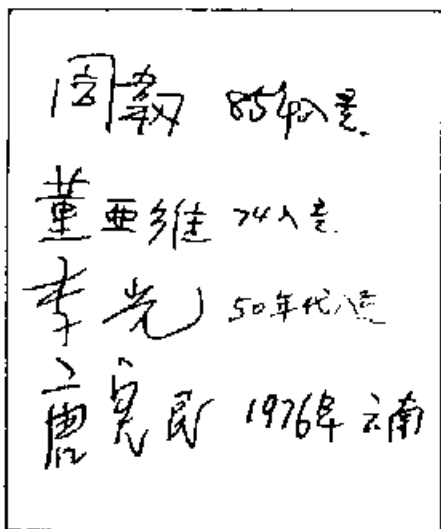 周毅 85年入党
董亚維 74入党
李光 50年代入党
唐宪民 1976年云南